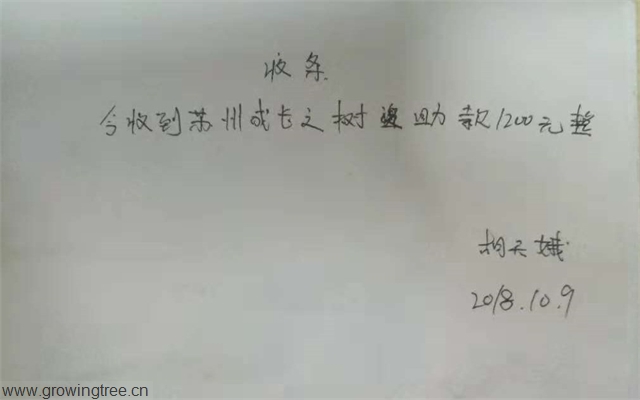 收条
今收到苏州成长之树资助款1200元整
柏天娥
2018.10.9
www.growingtree.cn